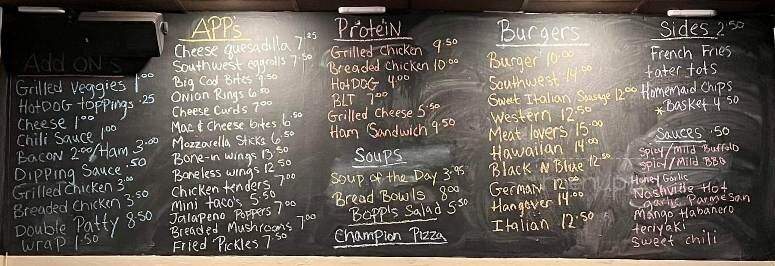 Add ON's
Grilled Veggies 1.00
HotDOG toppings .25
Cheese 1.00
Chili Sauce 1.00
Bacon 2.00/Ham 3.00
Dipping Sauce .50
Grilled Chicken 3.00
Breaded Chicken 3.50
Double Patty 8.50
Wrap 1.50
APP's
Cheese quesadilla 7.25
Southwest eggrolls 7.50
Big Cod Bites 9.50
Onion Rings 6.50
Cheese Curds 7.00
Mac & Cheese bites 6.50
Mozzarella Sticks 6.50
Bone-in wings 13.50
Boneless wings 12.50
Chicken tenders 7.00
Mini taco's 5.50
Jalapeno Poppers 7.00
Breaded Mushrooms 7.00
Fried Pickles 7.50
Protein
Grilled Chicken 9.50
Breaded Chicken 10.00
HotDOG 4.00
BLT 7.00
Grilled Cheese 5.50
Ham Sandwich 9.50
Soups
Soup of the Day 3.95
Bread Bowls 8.00
Bopp's Salad 5.50
Champion Pizza
Burgers
Burger 10.00
Southwest 14.00
Sweet Italian Sausage 12.00
Western 12.50
Meat lovers 15.00
Hawaiian 14.00
Black N Blue 12.50
German 12.00
Hangover 14.00
Italian 12.50
Sides 2.50
French Fries
tater tots
Homemaid Chips
*Basket 4.50
Sauces .50
Spicy/Mild Buffalo
Spicy/Mild BBQ
Honey Garlic
Nashville Hot
Garlic Parmesan
Mango Habanero
teriyaki
Sweet chili